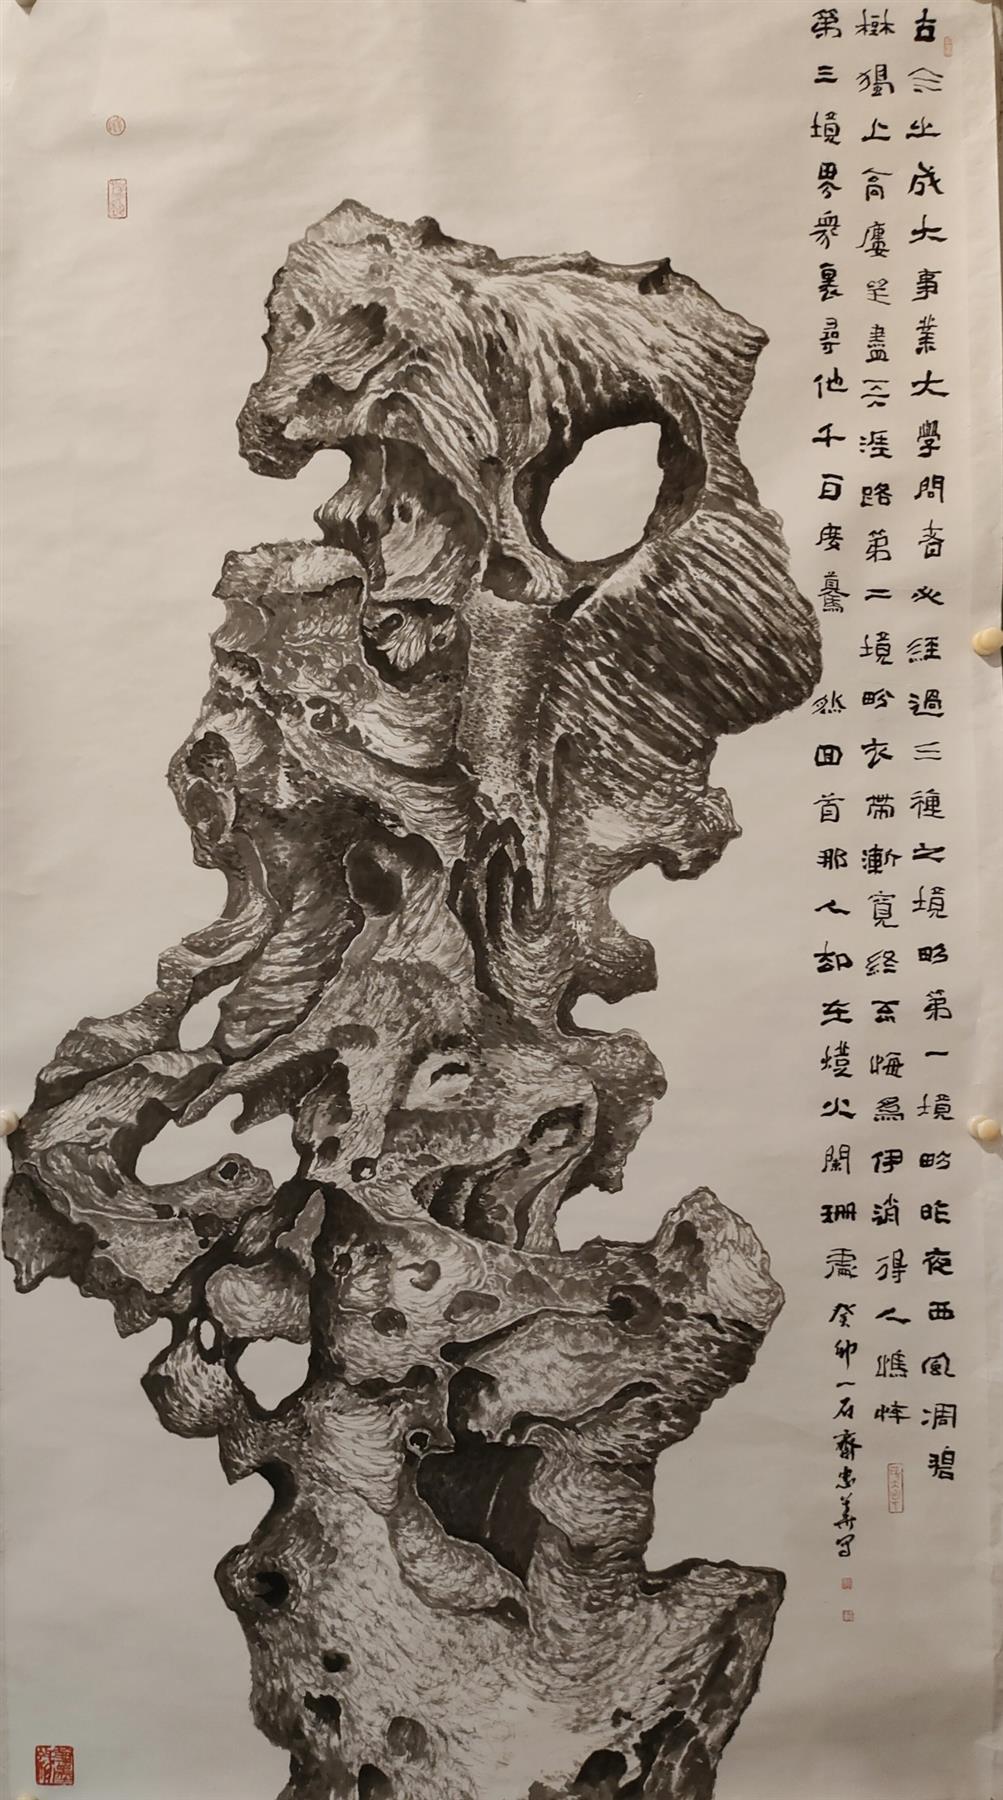 古今之成大事業大學問者必經過三種之境界第一境界昨夜西風凋碧
樹獨上高廔望盡天涯路第二境界衣帶漸寬終不悔為伊消得人憔悴
第三境界眾裏尋他千百度驀然回首那人却在燈火闌珊處
癸卯一石齋忠義写